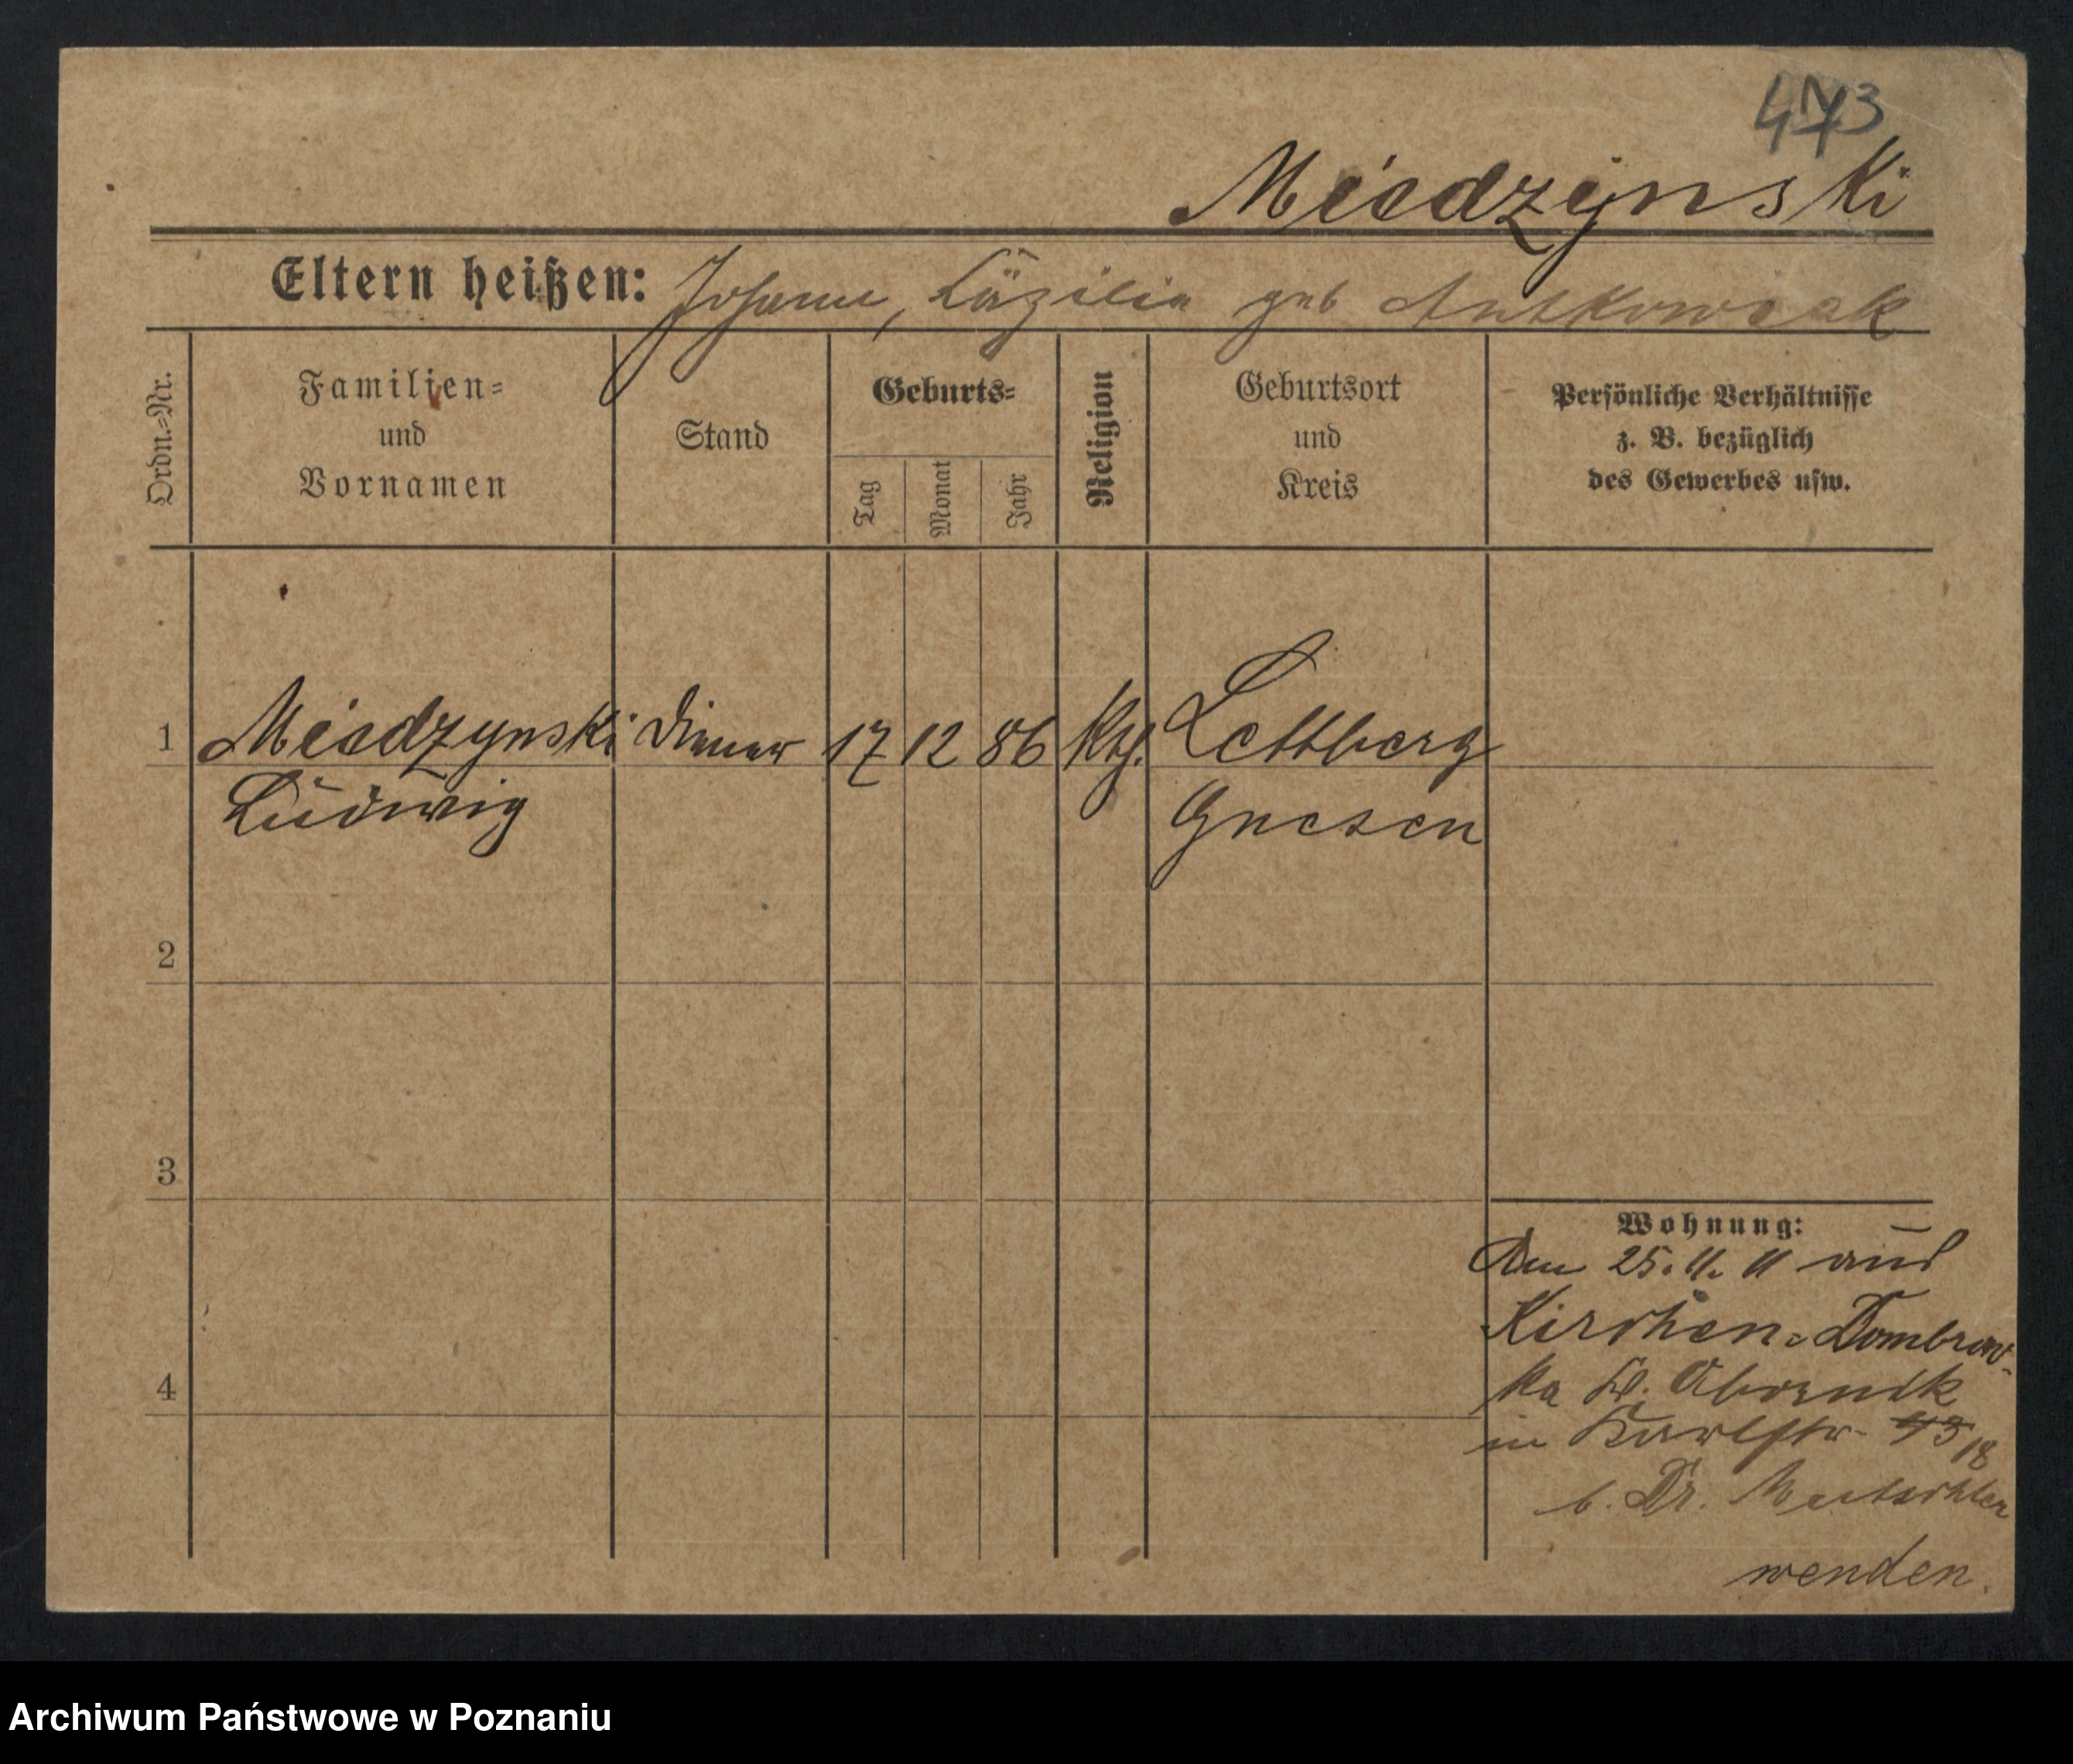 473
Miedzynski
Eltern heißen: Johann, Cäzilia geb Antkowiak
Ordn.=Nr.
Familien=
und
Vornamen
Stand
Geburts=
Tag
Monat
Jahr
Religion
Geburtsort
und
Kreis
Persönliche Verhältnisse
z. B. bezüglich
des Gewerbes usw.
1 Miedzynski Diener 17 12 86 Kth. Lettberg
Ludwig Gnesen
2
3
4
Wohnung:
Am 25.11.11 aus
Kirchen-Dombrow-
ka Kr. Obornik
in Karlstr. 43 18
b. Dr.
wenden.
Archiwum Państwowe w Poznaniu